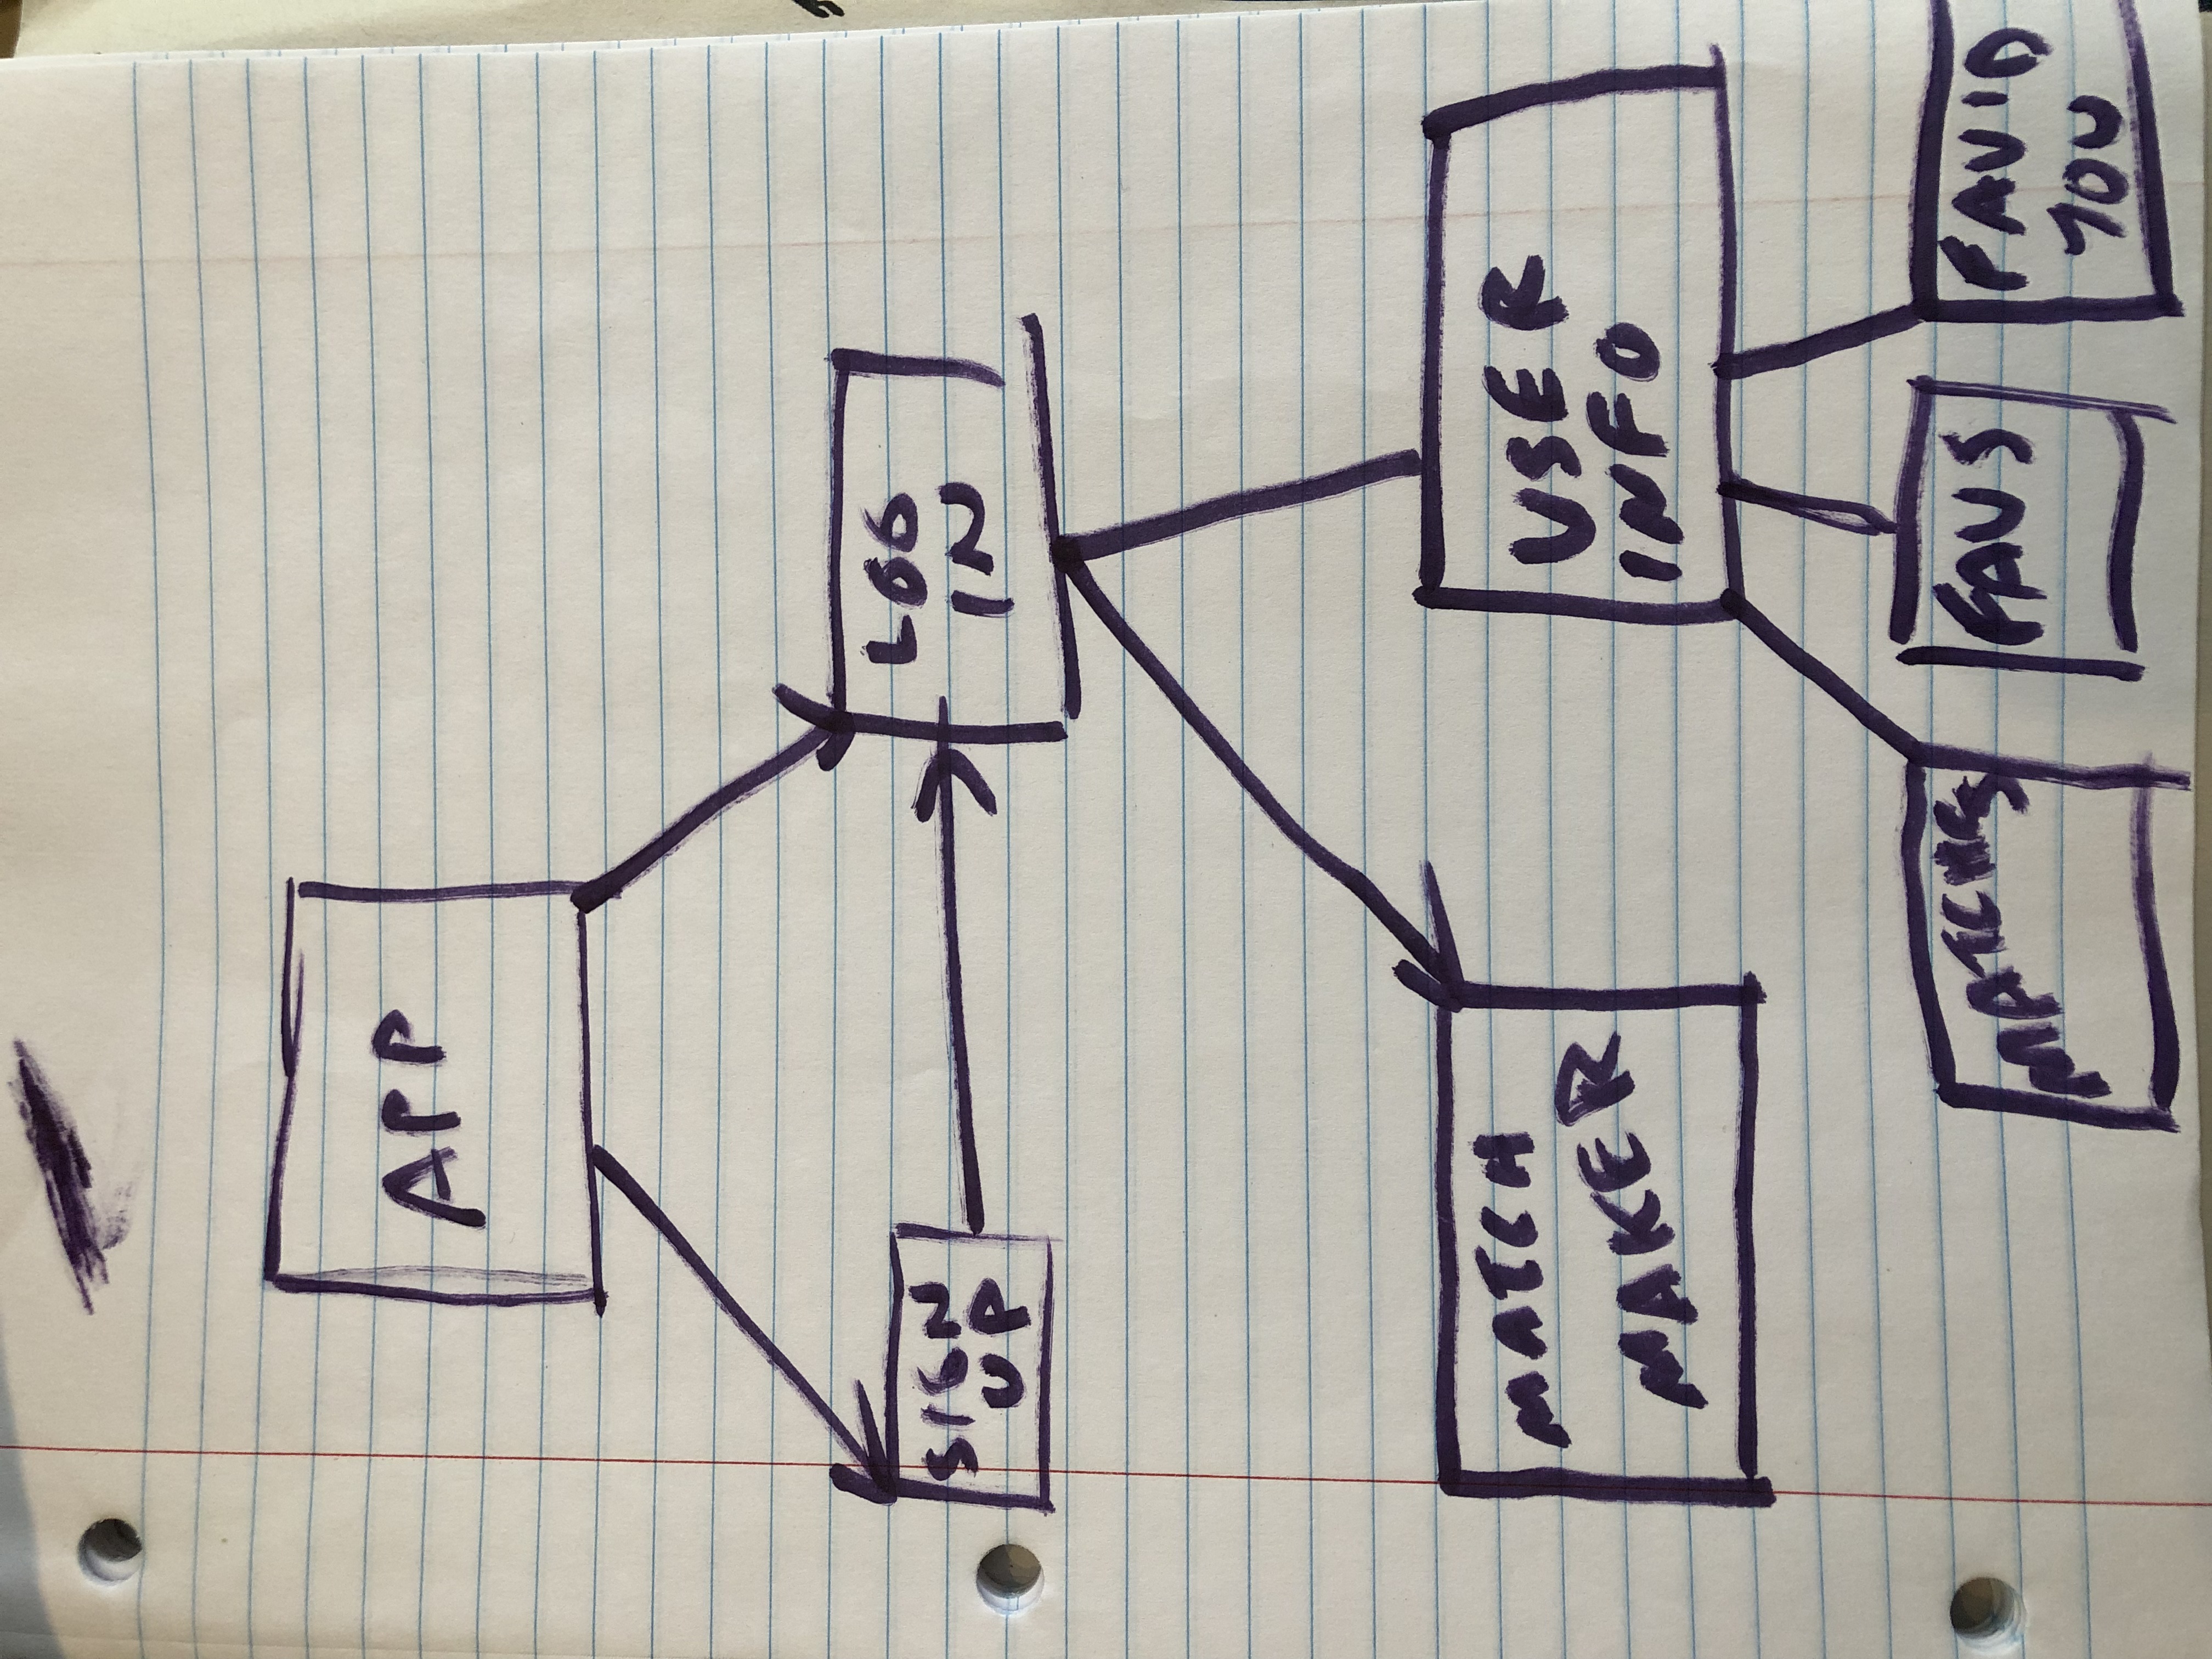 APP
SIGN
UP
LOG
IN
MATCH
MAKER
USER
INFO
MATCHES
FAVS
FAV'D
YOU